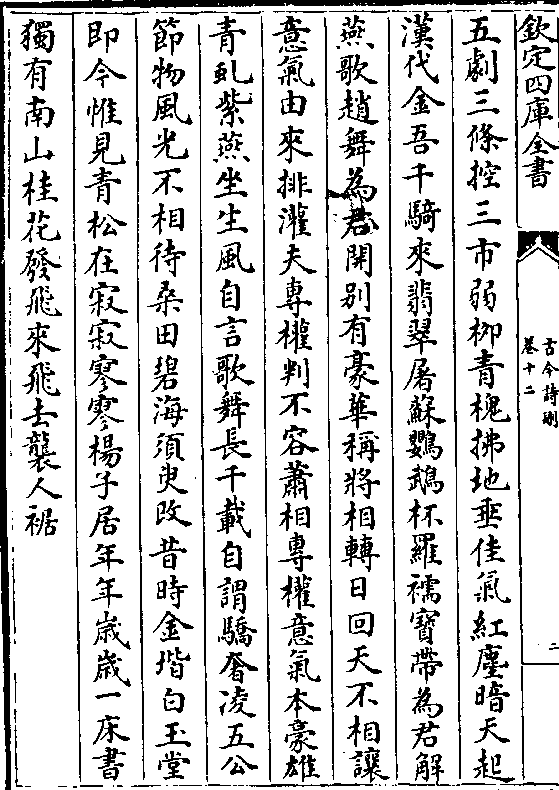 欽定四庫全書
古今詩刪
卷十二
二
五劇三條控三市弱栁青槐拂地垂佳氣紅塵暗天起
漢代金吾千騎來翡翠屠蘇鸚鵡杯羅襦寶帶為君解
燕歌趙舞為君開别有豪華稱將相轉日回天不相讓
意氣由來排灌夫專權判不容蕭相專權意氣本豪雄
青虬紫燕坐生風自言歌舞長千載自謂驕奢凌五公
節物風光不相待桑田碧海須臾改昔時金堦白玉堂
即今惟見青松在寂寂寥寥楊子居年年歳歳一床書
獨有南山桂花發飛來飛去襲人裾